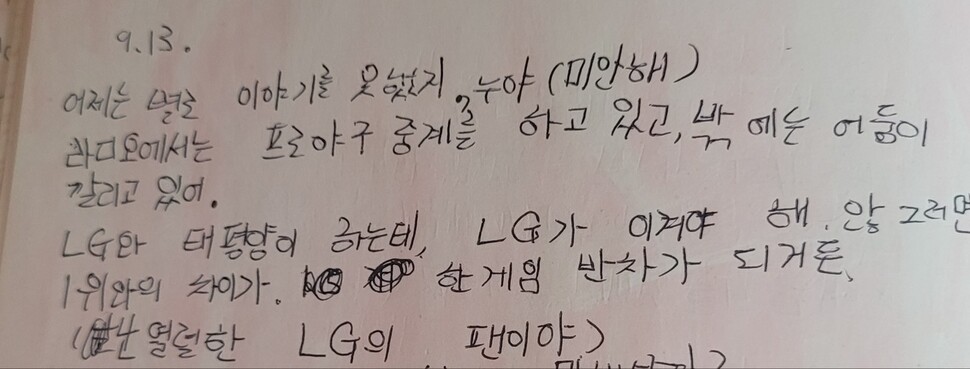 9.13.
어제는 별로 이야기를 못했지? 누야 (미안해)
라디오에서는 프로야구 중계를 하고 있고, 밖에는 어둠이
깔리고 있어.
LG와 태평양이 하는데, LG가 이겨야 해. 않그러면
1위와의 차이가. 한게임 반차가 되거든.
(난 열렬한 LG의 팬이야)